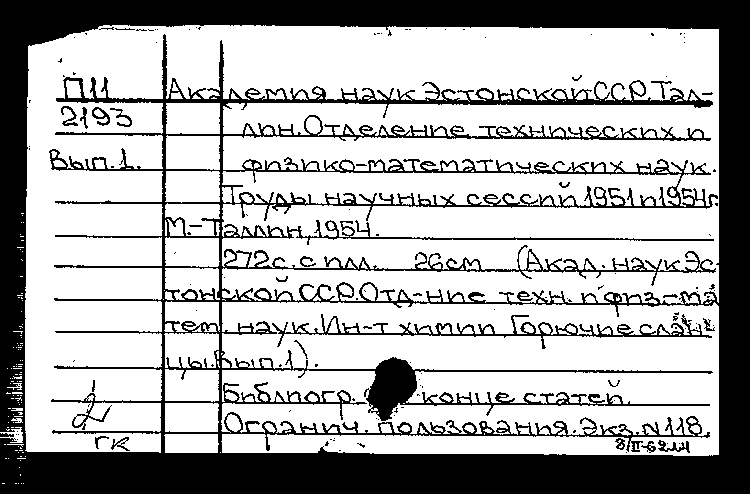 П11 Академия наук Эстонской ССР. Тал-
2193 лин. Отделение технических и
Вып.1. физико-математических наук.
Труды научных сессий 1951 и 1954г.
М.-Таллин, 1954.
272с. с илл. 26см (Акад. наук Эс-
тонской ССР. Отд-ние техн. и физ.-ма
тем. наук. Ин-т химии. Горючие слан-
цы. Вып.1).
Библиогр. конце статей.
2 Огранич. пользования. Экз. N118.
гк